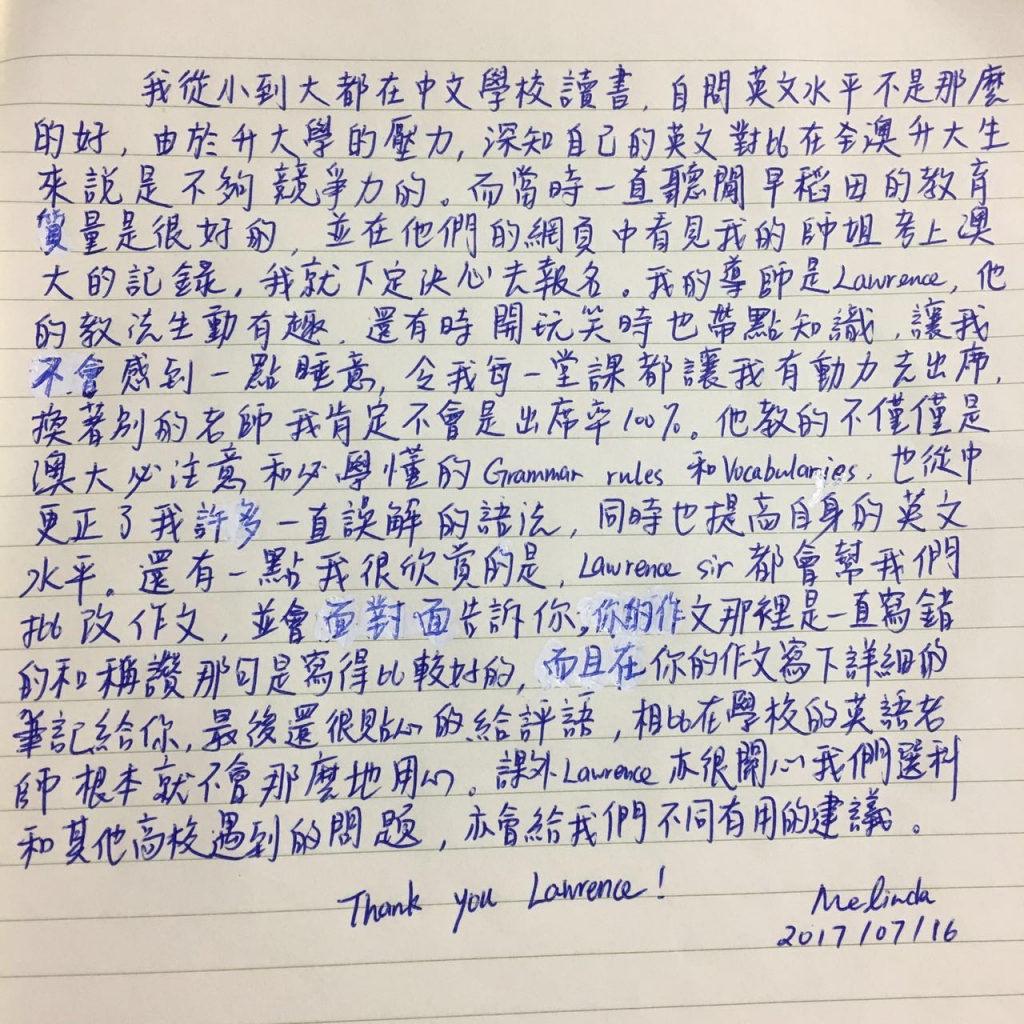 我從小到大都在中文學校讀書，自問英文水平不是那麼
的好，由於升大學的壓力，深知自己的英文對比在全澳升大生
來說是不夠競爭力的。而當時一直聽聞早稻田的教育
質量是很好的，並在他們的網頁中看見我的師姐考上澳
大的記錄，我就下定決心去報名。我的導師是Lawrence，他
的教法生動有趣，還有時開玩笑時也帶點知識，讓我
不會感到一點睡意，令我每一堂課都讓我有動力去出席，
換著別的老師我肯定不會是出席率100%。他教的不僅僅是
澳大必注意和必學懂的Grammar rules 和Vocabularies，也從中
更正了我許多一直誤解的語法，同時也提高自身的英文
水平。還有一點我很欣賞的是，Lawrence sir 都會幫我們
批改作文，並會面對面告訴你，你的作文那裡是一直寫錯
的和稱讚那句是寫得比較好的，而且在你的作文寫下詳細的
筆記給你，最後還很貼心的給評語，相比在學校的英語老
師根本就不會那麼地用心。課外Lawrence亦很關心我們選科
和其他高校遇到的問題，亦會給我們不同有用的建議。
Thank you Lawrence!
Melinda
2017/07/16